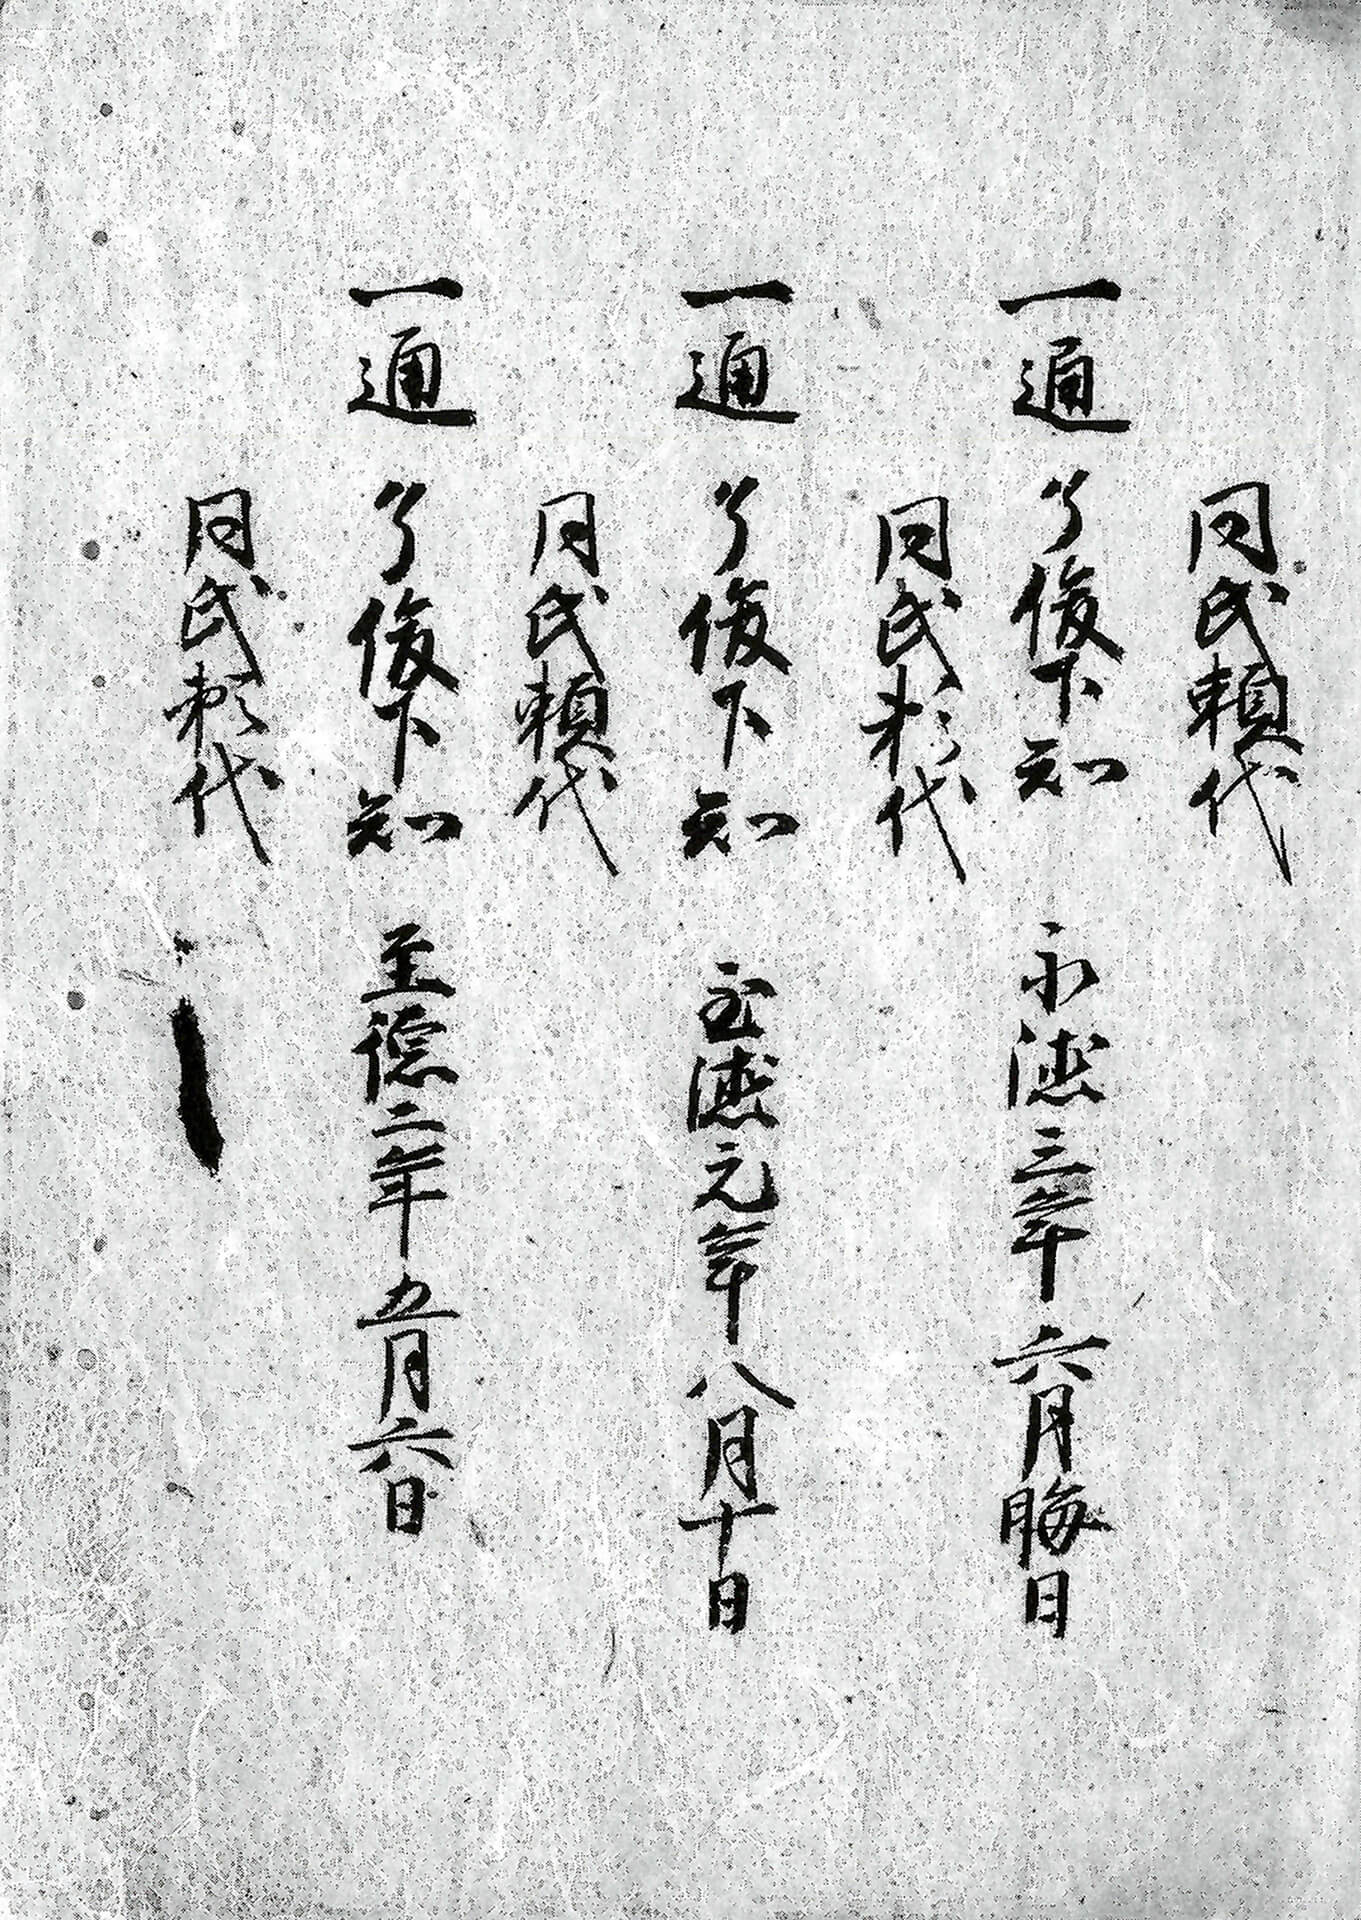 同氏頼代
一通 了俊下知 永徳三年六月晦日
同氏頼代
一通 了俊下知 至徳元年八月十日
同氏頼代
一通 了俊下知 至徳二年五月六日
同氏頼代